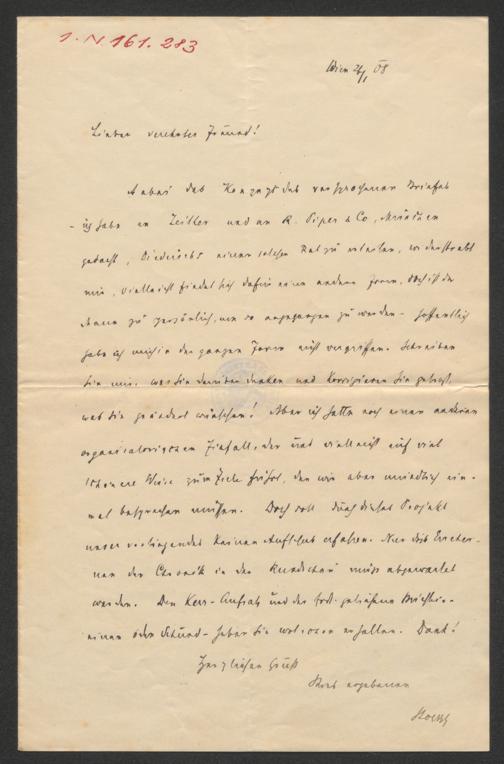 I.N. 161.283
Wien 26/1 08
Lieber verehrter Freund!
Anbei das Konzept des versprochenen Briefes
– ich habe an Zeitler und an R. Piper & Co, München
gedacht, Diederichs einen solchen Rat zu erteilen, widerstrebt
mir, vielleicht findet sich dafür eine andere Form, doch ist der
Mann zu persönlich, um so angegangen zu werden – hoffentlich
habe ich mich in der ganzen Form nicht vergriffen. Schreiben
Sie mir, was Sie darüber denken und korrigieren Sie gefälligst,
was Sie geändert wünschen! Aber ich hätte noch einen anderen
organisatorischen Einfall, der uns vielleicht auf viel
schönere Weise zum Ziele führt, den wir aber mündlich ein-
mal besprechen müssen. Doch soll durch dieses Projekt
unser vorliegendes keinen Aufschub erfahren. Nur das Erschei-
nen der Chronik in der Rundschau muss abgewartet
werden. Den Kerr-Aufsatz und das
einen oder haben Sie wol schon erhalten. Dank!
Herzlichen Gruß
Ihres ergebenen